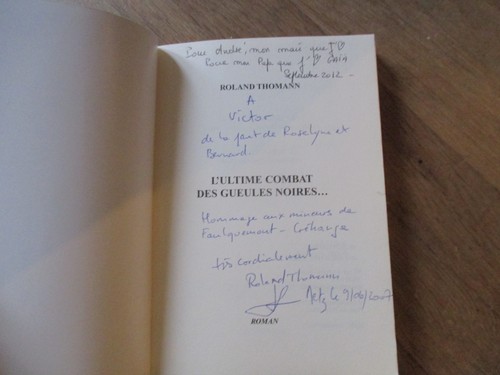 Pour André, mon mari que j'
Pour mon Papa que j'
Septembre 2012 -
ROLAND THOMANN
A
Victor
de la part de Roselyne et
Bernard.
L'ULTIME COMBAT
DES GUEULES NOIRES...
Hommage aux mineurs de
Faulquemont - Créhange
très cordialement
Roland Thomann
Metz le 9/06/2007
ROMAN